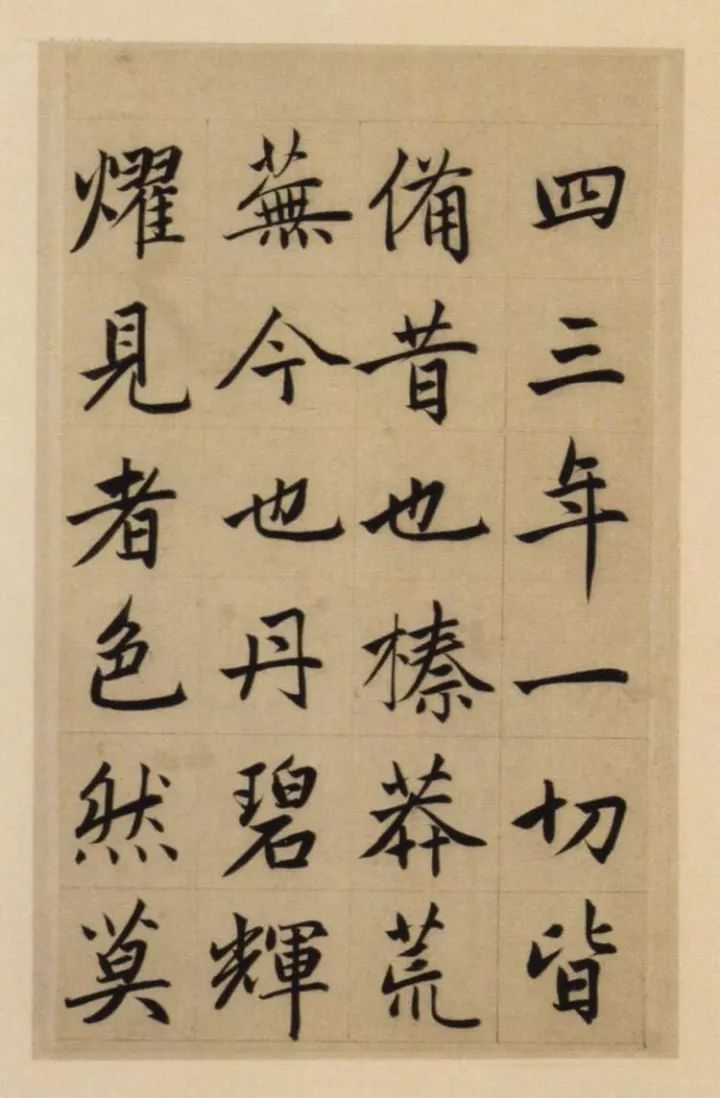 四三年一切皆
備昔也榛莽荒
蕪今也丹碧輝
燿見者色然莫